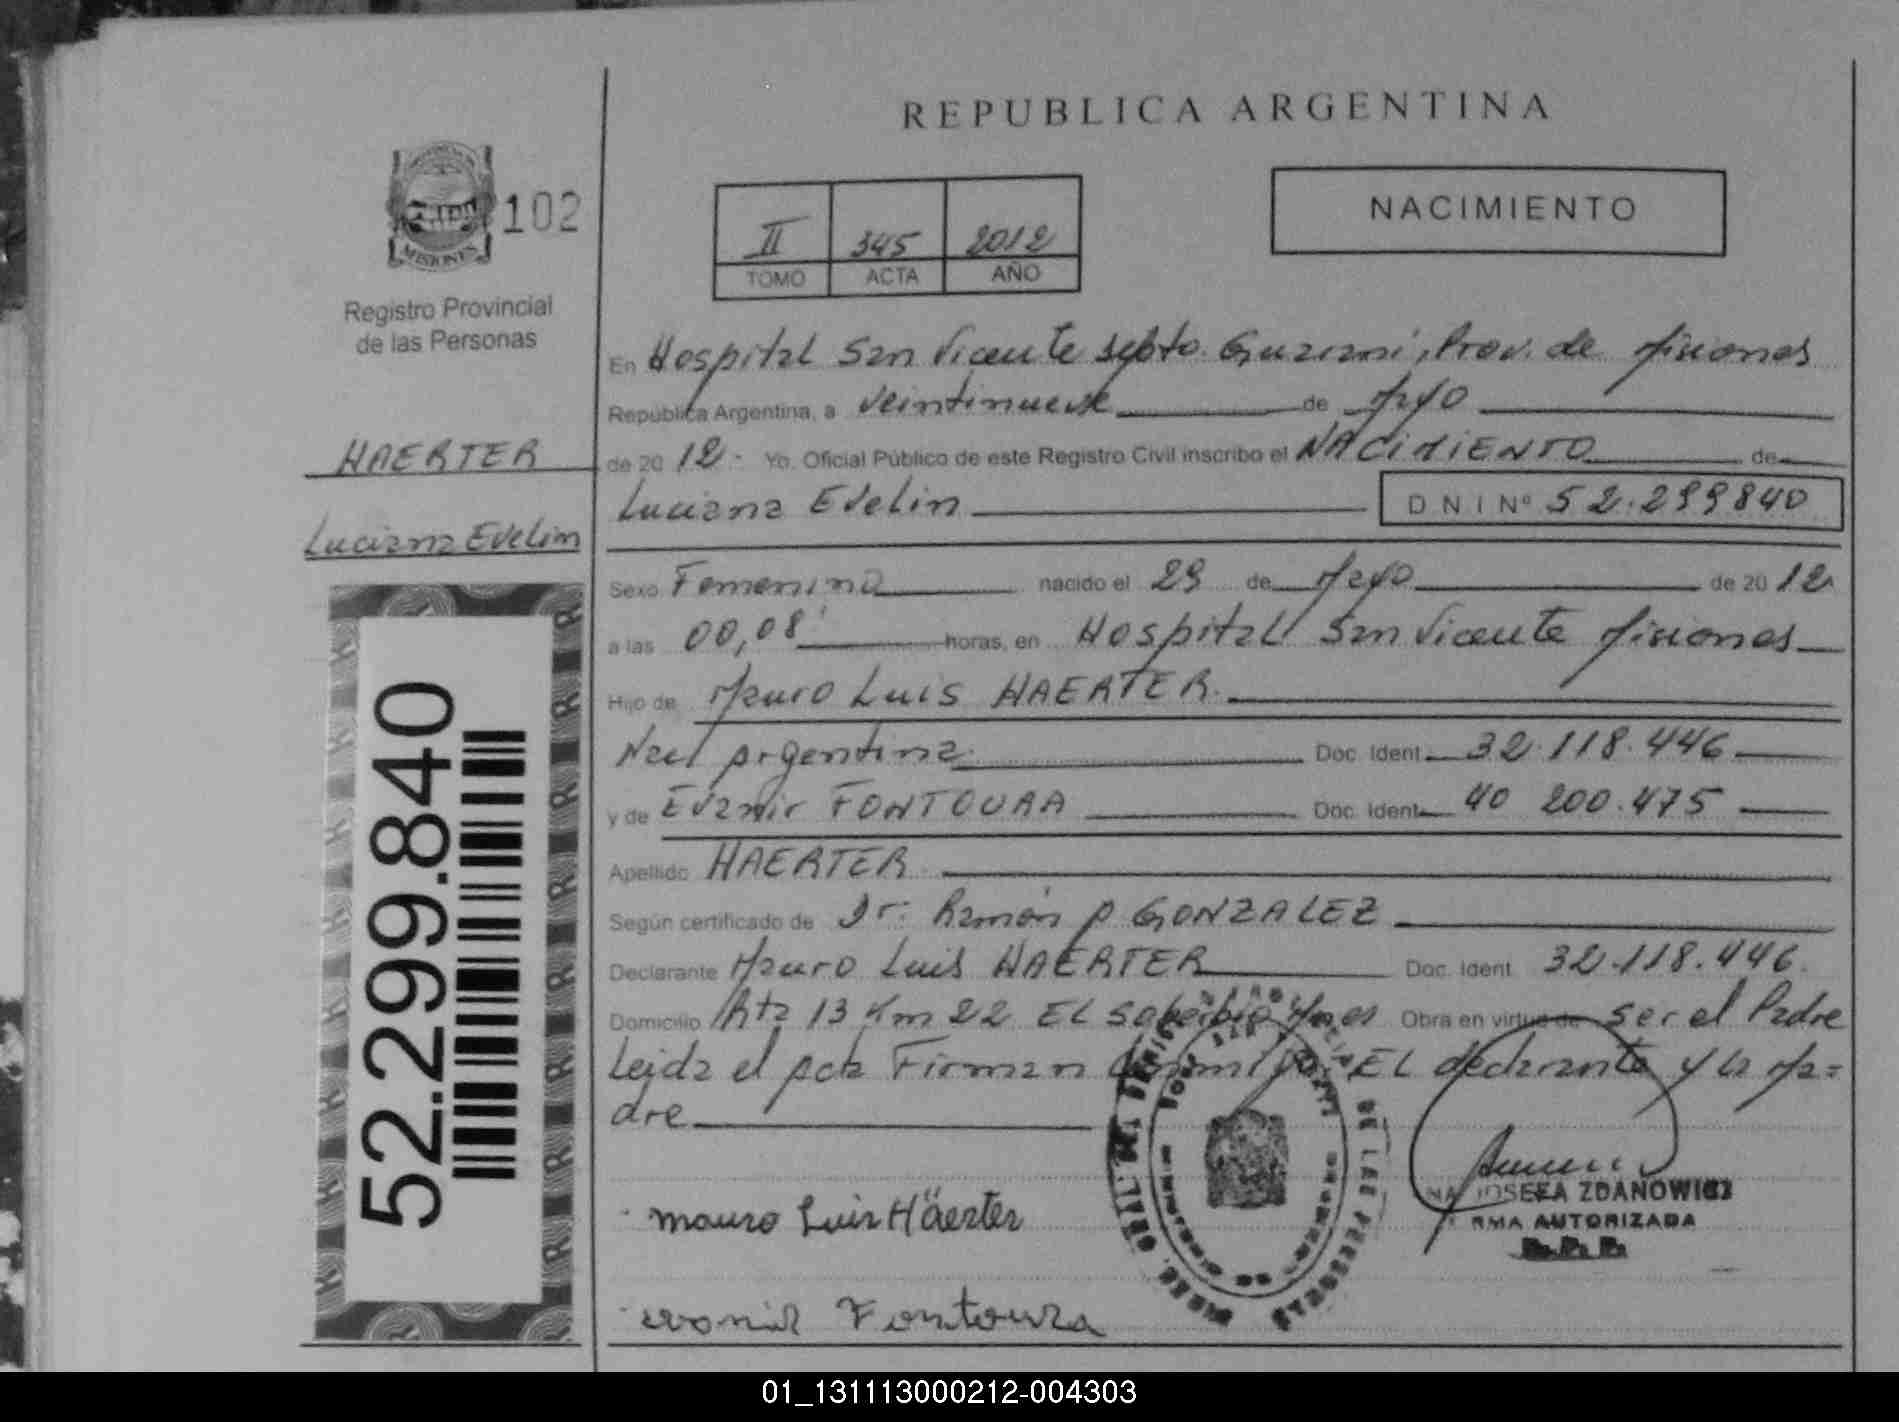 REPUBLICA ARGENTINA
MISIONES
102
Registro Provincial
de las Personas
II 345 2012
TOMO ACTA AÑO
NACIMIENTO
En Hospital San Vicente Depto. Guarani, Prov. de Misiones
República Argentina, a veintinueve de Mayo
HAERTER
de 20 12 - Yo, Oficial Público de este Registro Civil inscribo el NACIMIENTO de
Luciana Evelin
D N I Nº 52.299840
Luciana Evelin
Sexo Femenino nacido el 29 de Mayo de 20 12
a las 00,08' horas, en Hospital San Vicente Misiones
Hijo de Mauro Luis HAERTER.
Nac Argentina Doc. Ident. 32.118.446
y de Evanir FONTOURA Doc. Ident. 40 200.475
Apellido HAERTER
Según certificado de Dr. Ramón A GONZALEZ
Declarante Mauro Luis HAERTER Doc. Ident. 32.118.446.
Domicilio Rta 13 Km 22 El Soberbio Mnes Obra en virtud de ser el Padre
Leida el Acta Firman conmigo El declarante y la Ma=
dre
52.299.840
Mauro Luis Häerter
JOSEFA ZDANOWICZ
RMA AUTORIZADA
R. P. P.
DE LAS PERSONAS
evanir Fontoura
01_131113000212-004303